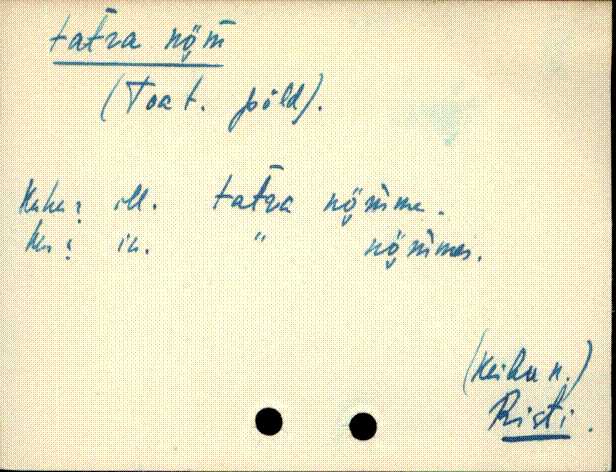 tatra nõm̄
(Toat. põld).
Kuhu? ill. tatra nõm̄me.
Kus? in. " nõm̄mes.
(Keila n.)
Risti.